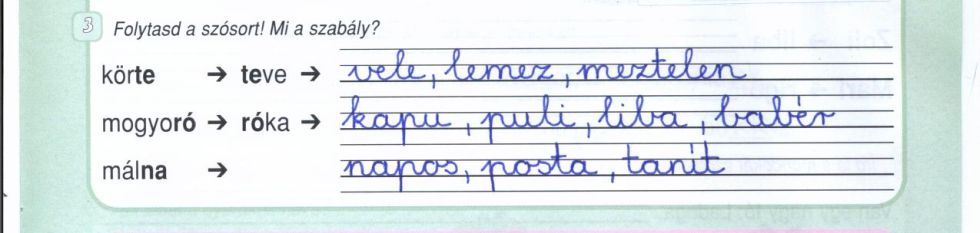 3 Folytasd a szósort! Mi a szabály?
körte → teve → vele, lemez, meztelen
mogyoró → róka → kapu, puli, liba, babér
málna → napos, posta, tanít